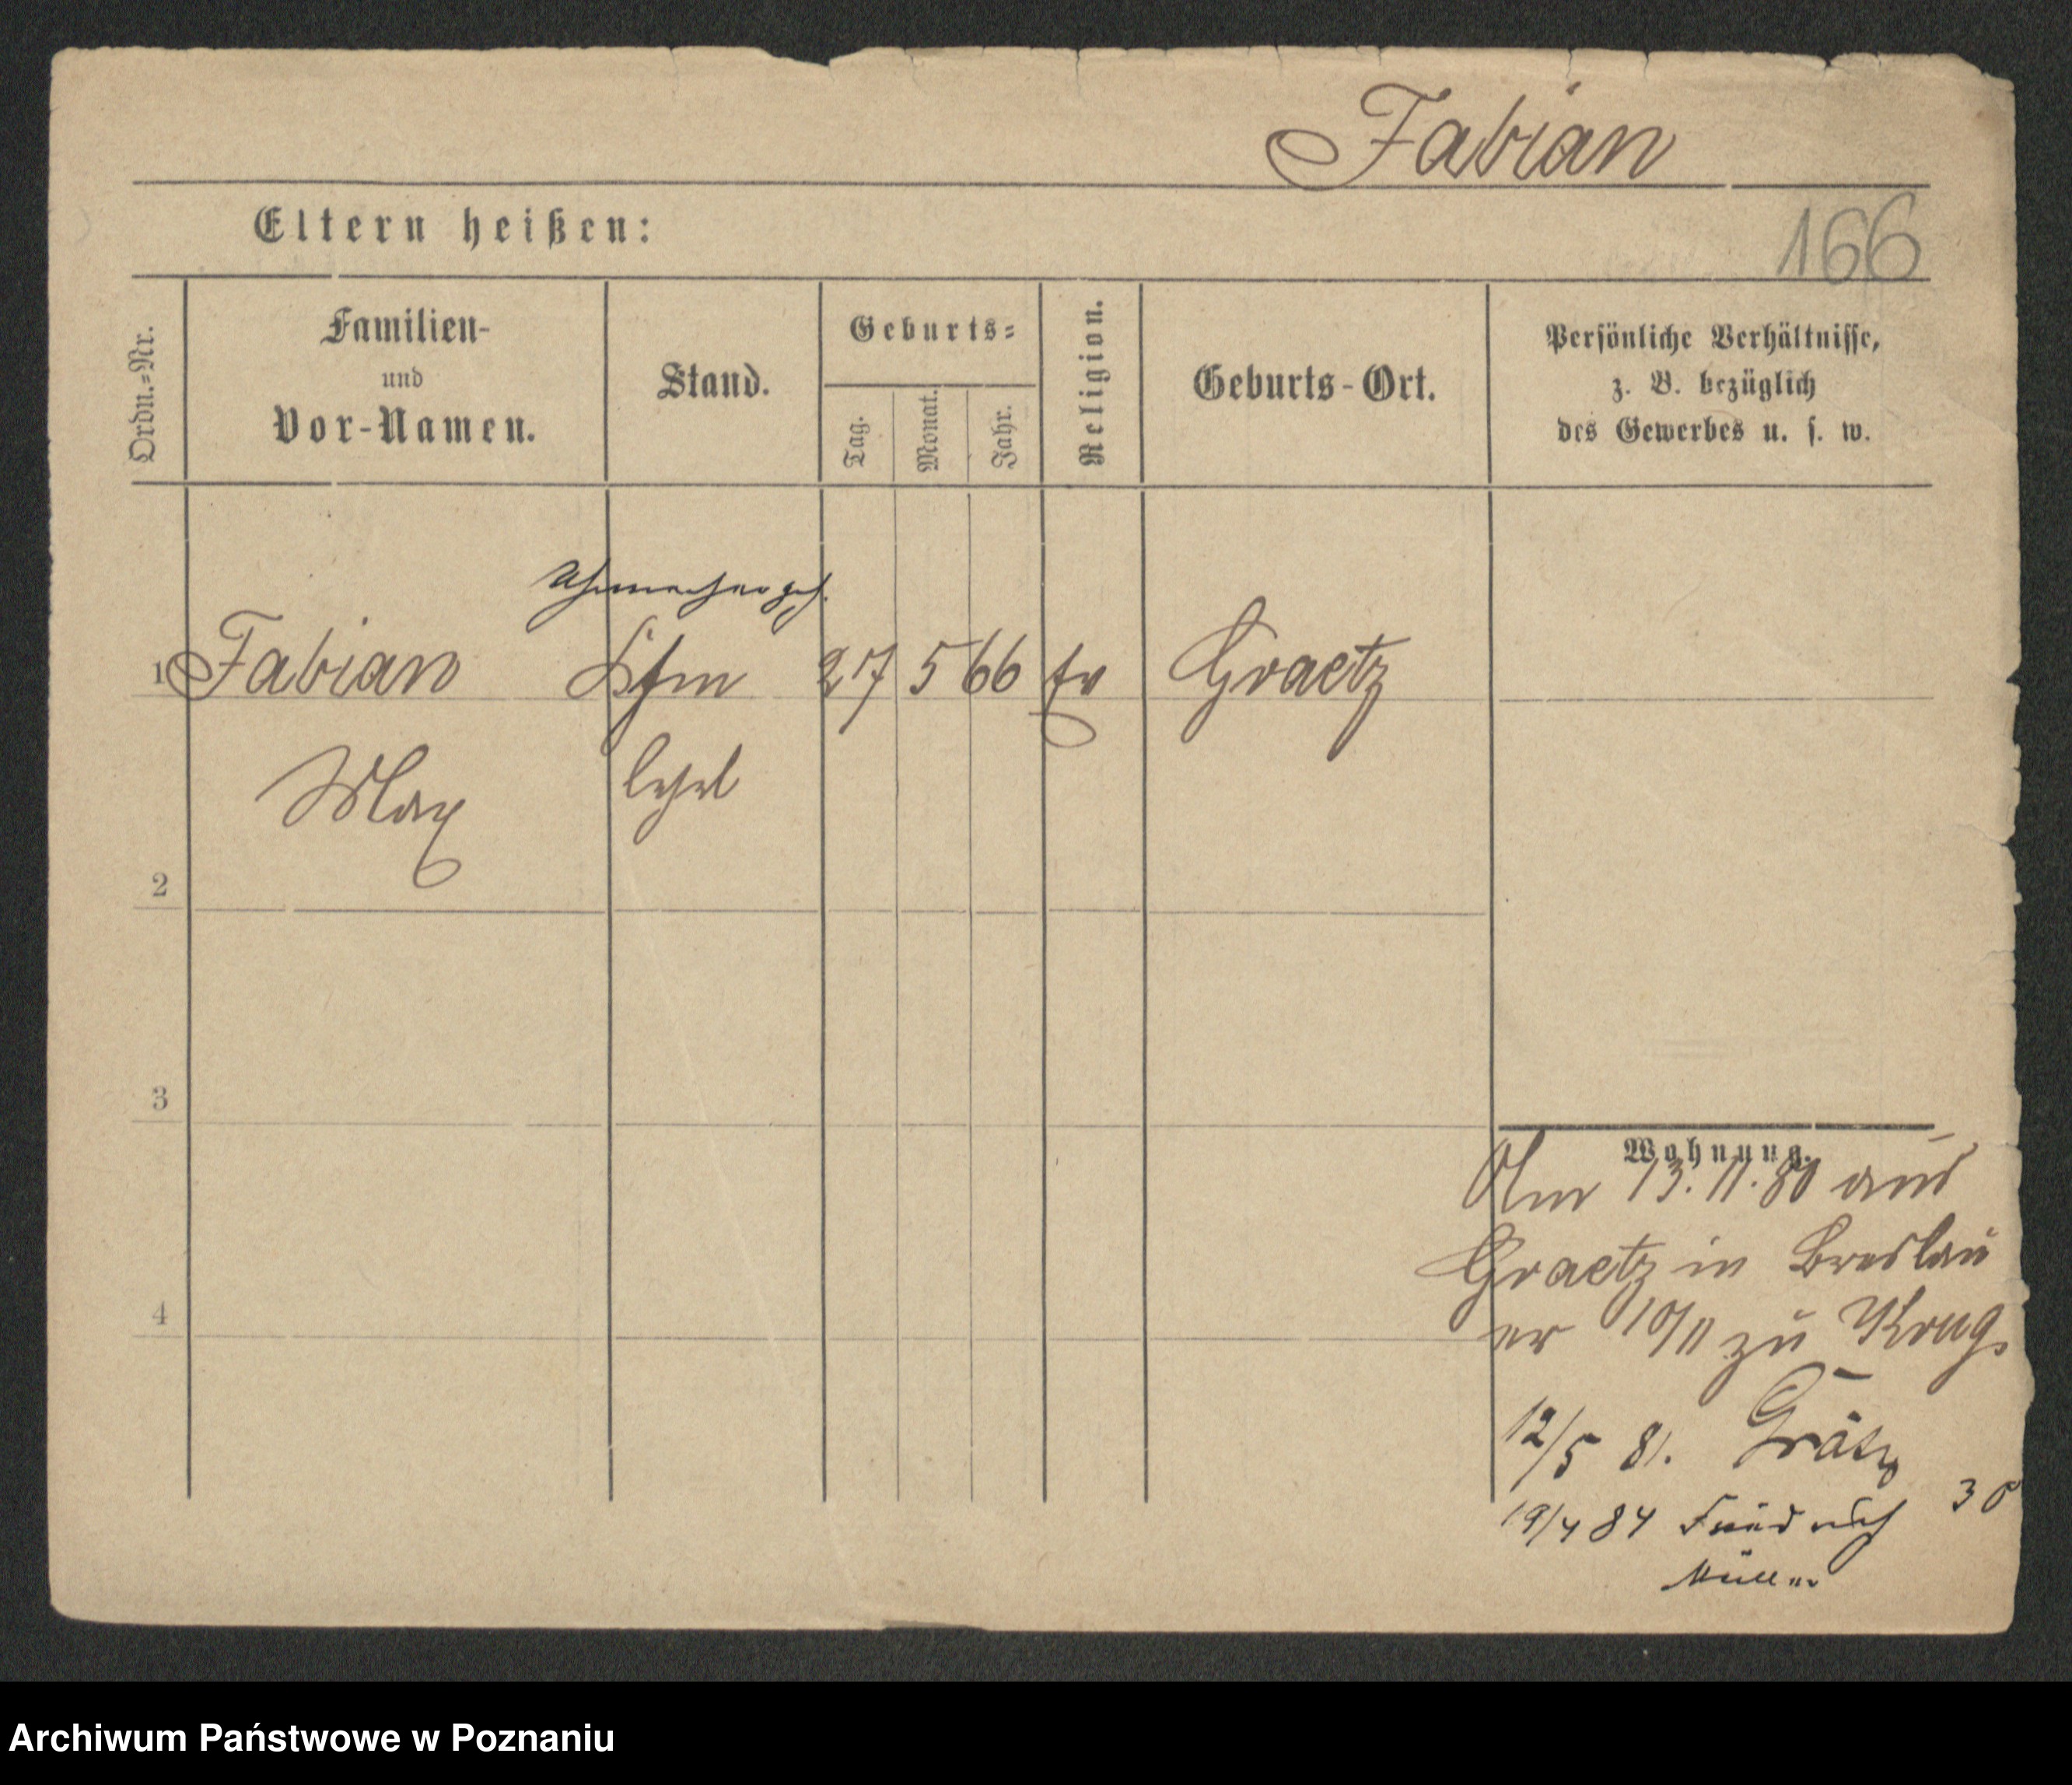 Fabian
Eltern heißen:
166
Ordn.-Nr.
Familien-
und
Vor-Namen.
Stand.
Geburts-
Tag.
Monat.
Jahr.
Religion.
Geburts-Ort.
Persönliche Verhältnisse,
z. B. bezüglich
des Gewerbes u. s. w.
Uhrmachergeh.
1 Fabian Kfm 27 5 66 Graetz
Max lehrl
2
3
4
Wohnung.
Am 13.11.80 aus
Graetz in Breslau
er 10/11 zu
12/5 81. Grätz
19/4 84 30
Müller
Archiwum Państwowe w Poznaniu